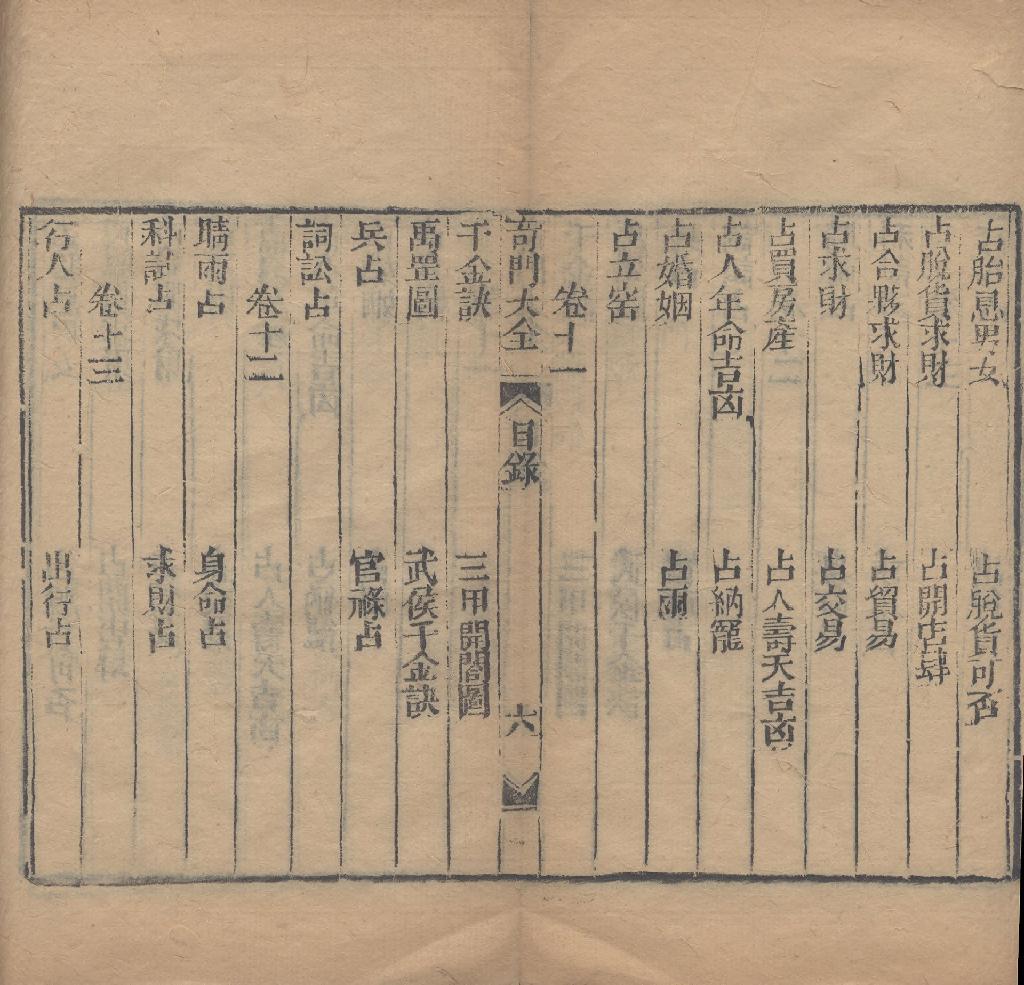 占胎息男女　占脫貨可否
占脫貨求財　占開店肆
占合夥求財　占貿易
占求財　占交易
占買房產　占人壽夭吉凶
占人年命吉凶　占納寵
占婚姻　占雨
占立密
卷十一
奇門大全　目錄　六
千金訣　三甲開闔圖
禹罡圖　武侯千金訣
兵占　官祿占
詞訟占
卷十二
晴雨占　身命占
科試占　求財占
卷十三
行人占　出行占